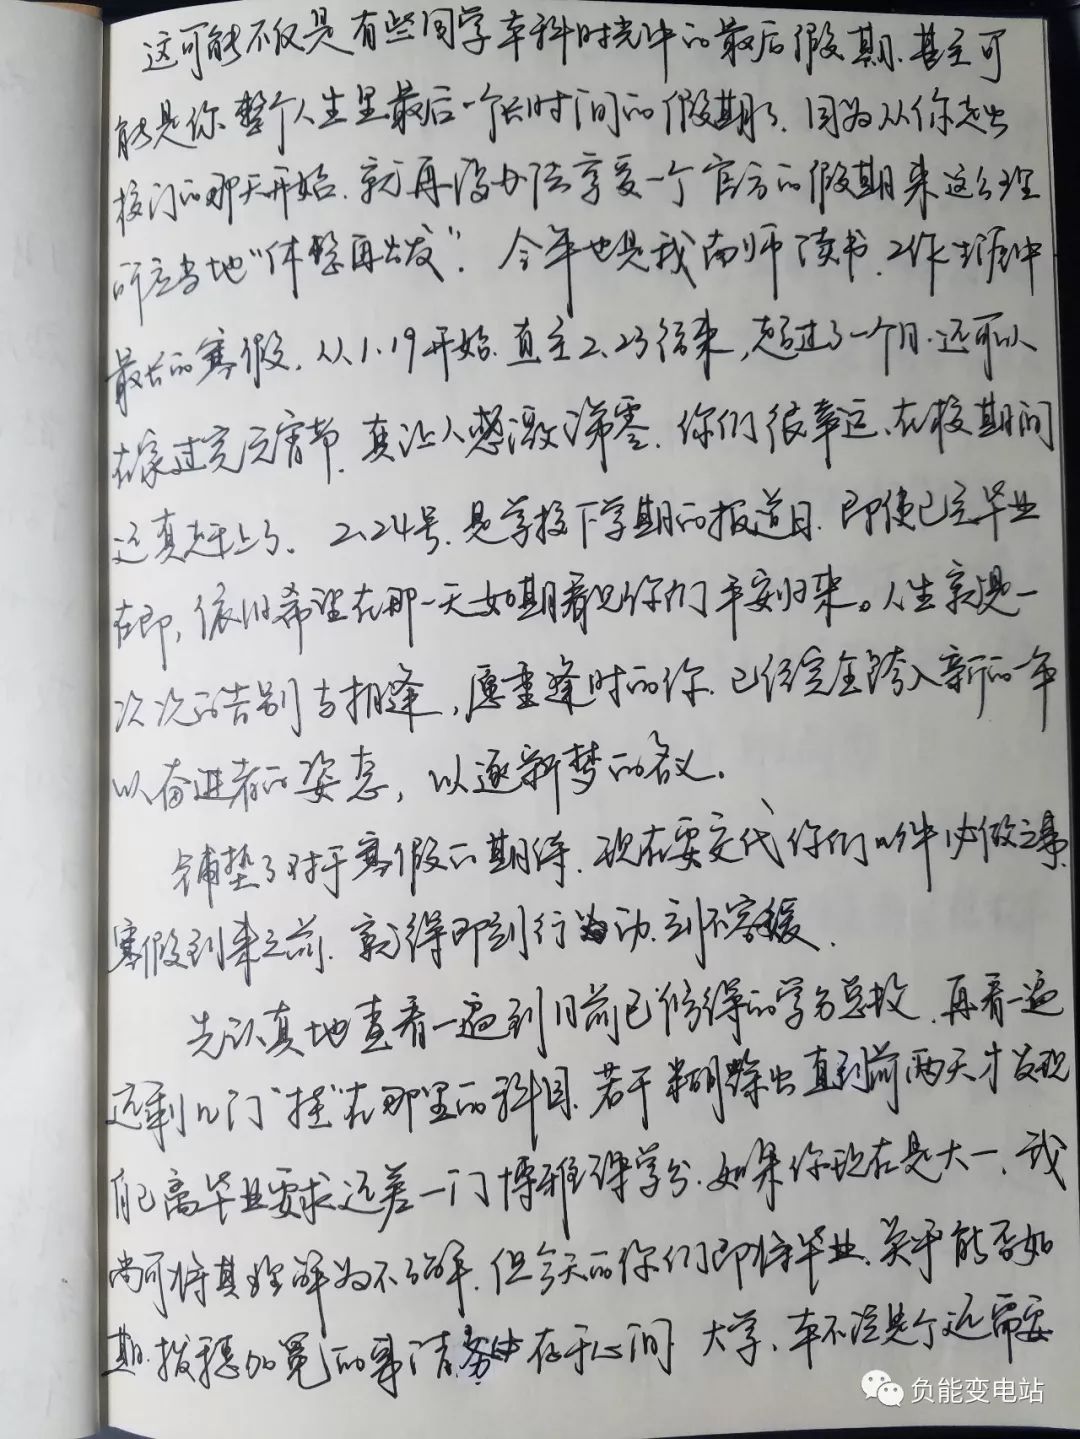 这可能不仅是有些同学本科时光中的最后假期.甚至可
能是你整个人生里最后一个长时间的假期了.因为从你走出
校门的那天开始.就再没办法享受一个官方的假期来这么理
所应当地“休整再出发”.今年也是我南师读书、工作生涯中
最长的寒假,从1.19开始.直至2.23结束,超过了一个月.还可以
在家过完元宵节.真让人感激涕零.你们很幸运、在校期间
还真赶上了.2.24号.是学校下学期的报道日.即使已是毕业
在即,依旧希望在那一天如期看见你们平安归来。人生就是一
次次的告别与相逢,愿重逢时的你.已经完全跨入新的一年
以奋进者的姿态,以逐新梦的名义.
铺垫了对于寒假的期待.现在要交代你们几件必做之事.
寒假到来之前.就得即刻行动.刻不容缓.
先认真地查看一遍到目前已修得的学分总数.再看一遍
还剩几门“挂”在那里的科目.若干糊涂虫直到前两天才发现
自己离毕业要求还差一门博雅课学分.如果你现在是大一.我
尚可将其理解为不了解.但今天的你们即将毕业.关乎能否如
期.拨穗加冕的事情.务必存于心间.大学、本不该是个还需要
负能变电站